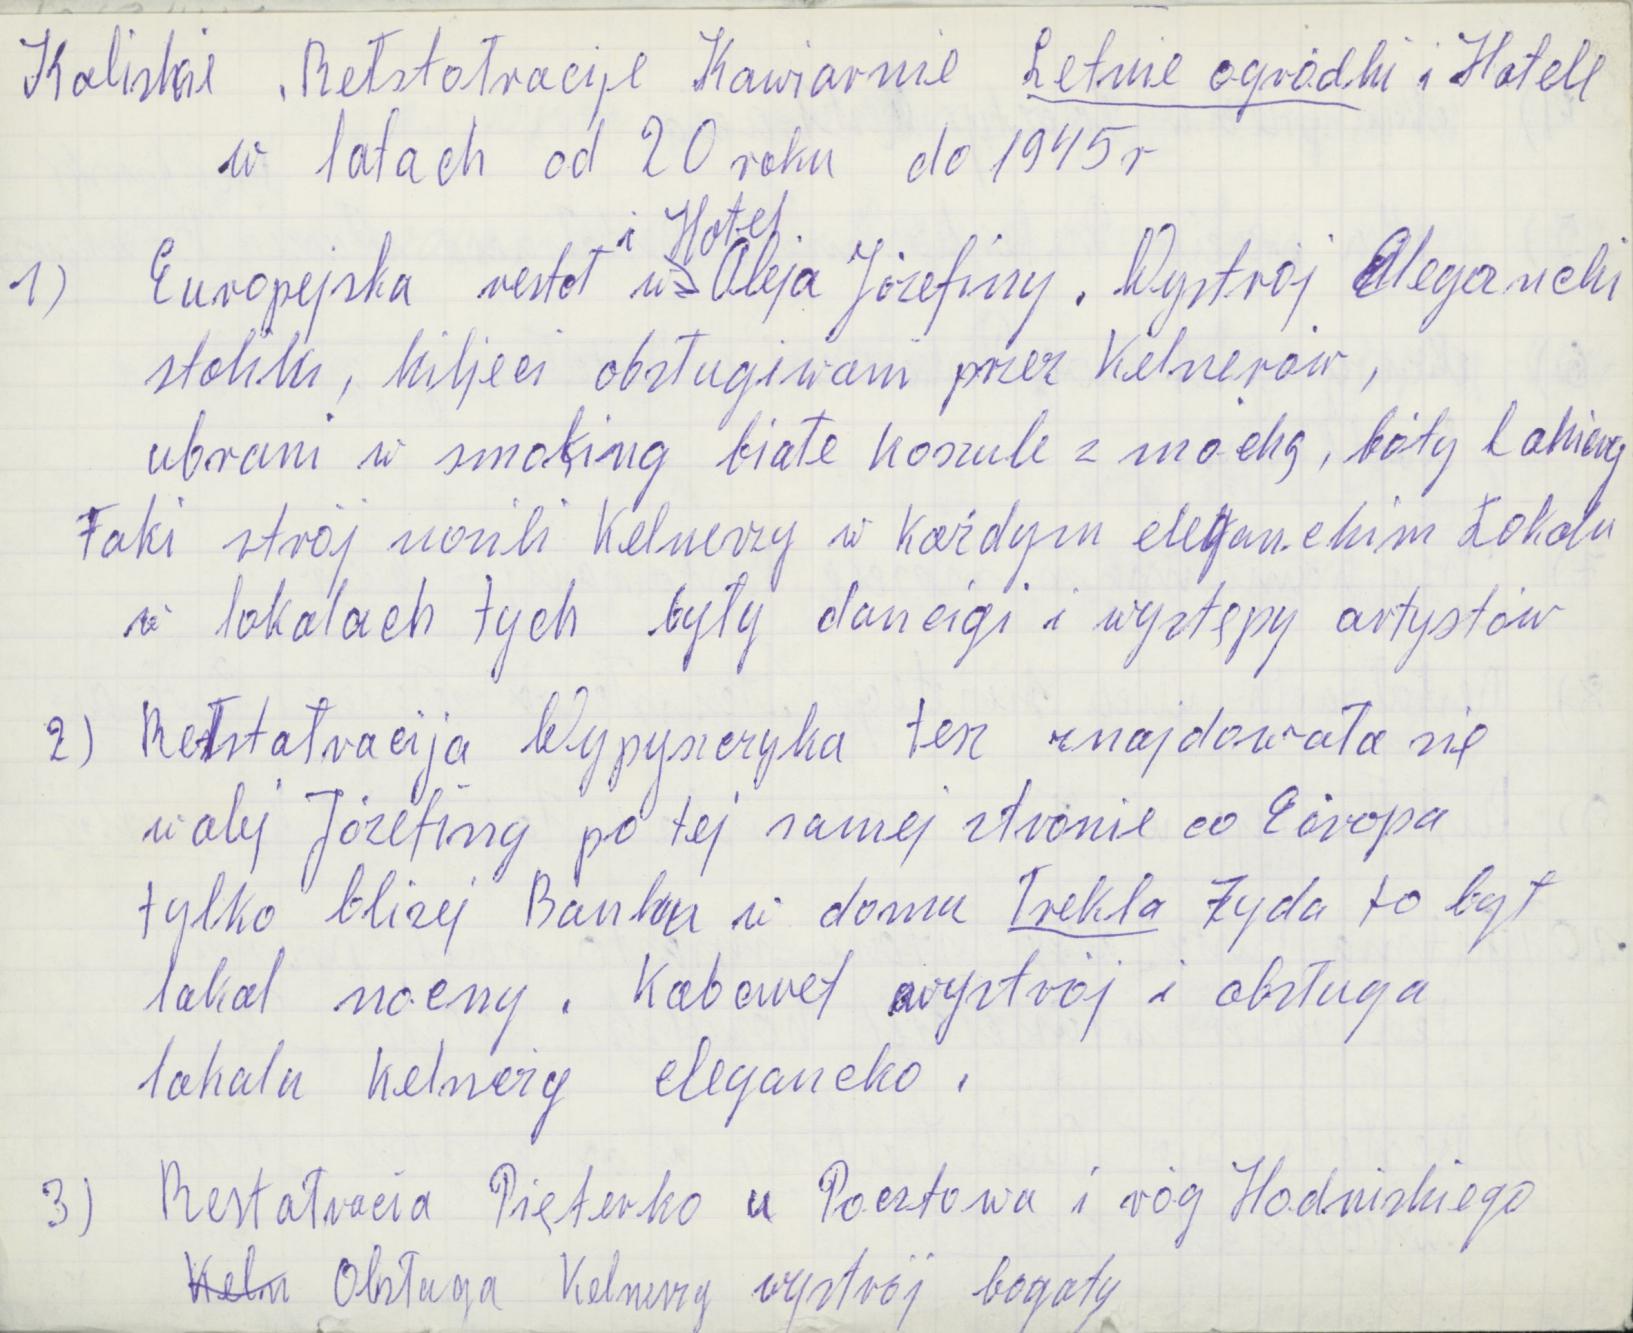 Kaliskie Retstotracije Kawiarnie Letnie ogródki i Hotele
w latach od 20 roku do 1945 r
i Hotel
1) Europejska restot w Aleja Józefiny. Wystrój Elegancki
stoliki, kiljeci obsługiwani przez Kelnerów,
ubrani w smoking białe koszule z moćhą, bóty Lakiery
Taki strój nosili Kelnerzy w każdym eleganckim Lokalu
w lokalach tych były dancigi i występy artystów
2) Retstatracija Wypyszczyka tesz znajdowała się
w alej Józefiny po tej samej stronie co Eiropa
tylko bliżej Banku w domu Trekla Żyda to był
lokal nocny. Kabaret wystrój i obsługa
lokalu Kelnerzy elegancko.
3) Restatracia Pięterko u Pocztowa i róg Hodniskiego
Keln Obsługa Kelnerzy wystrój bogaty